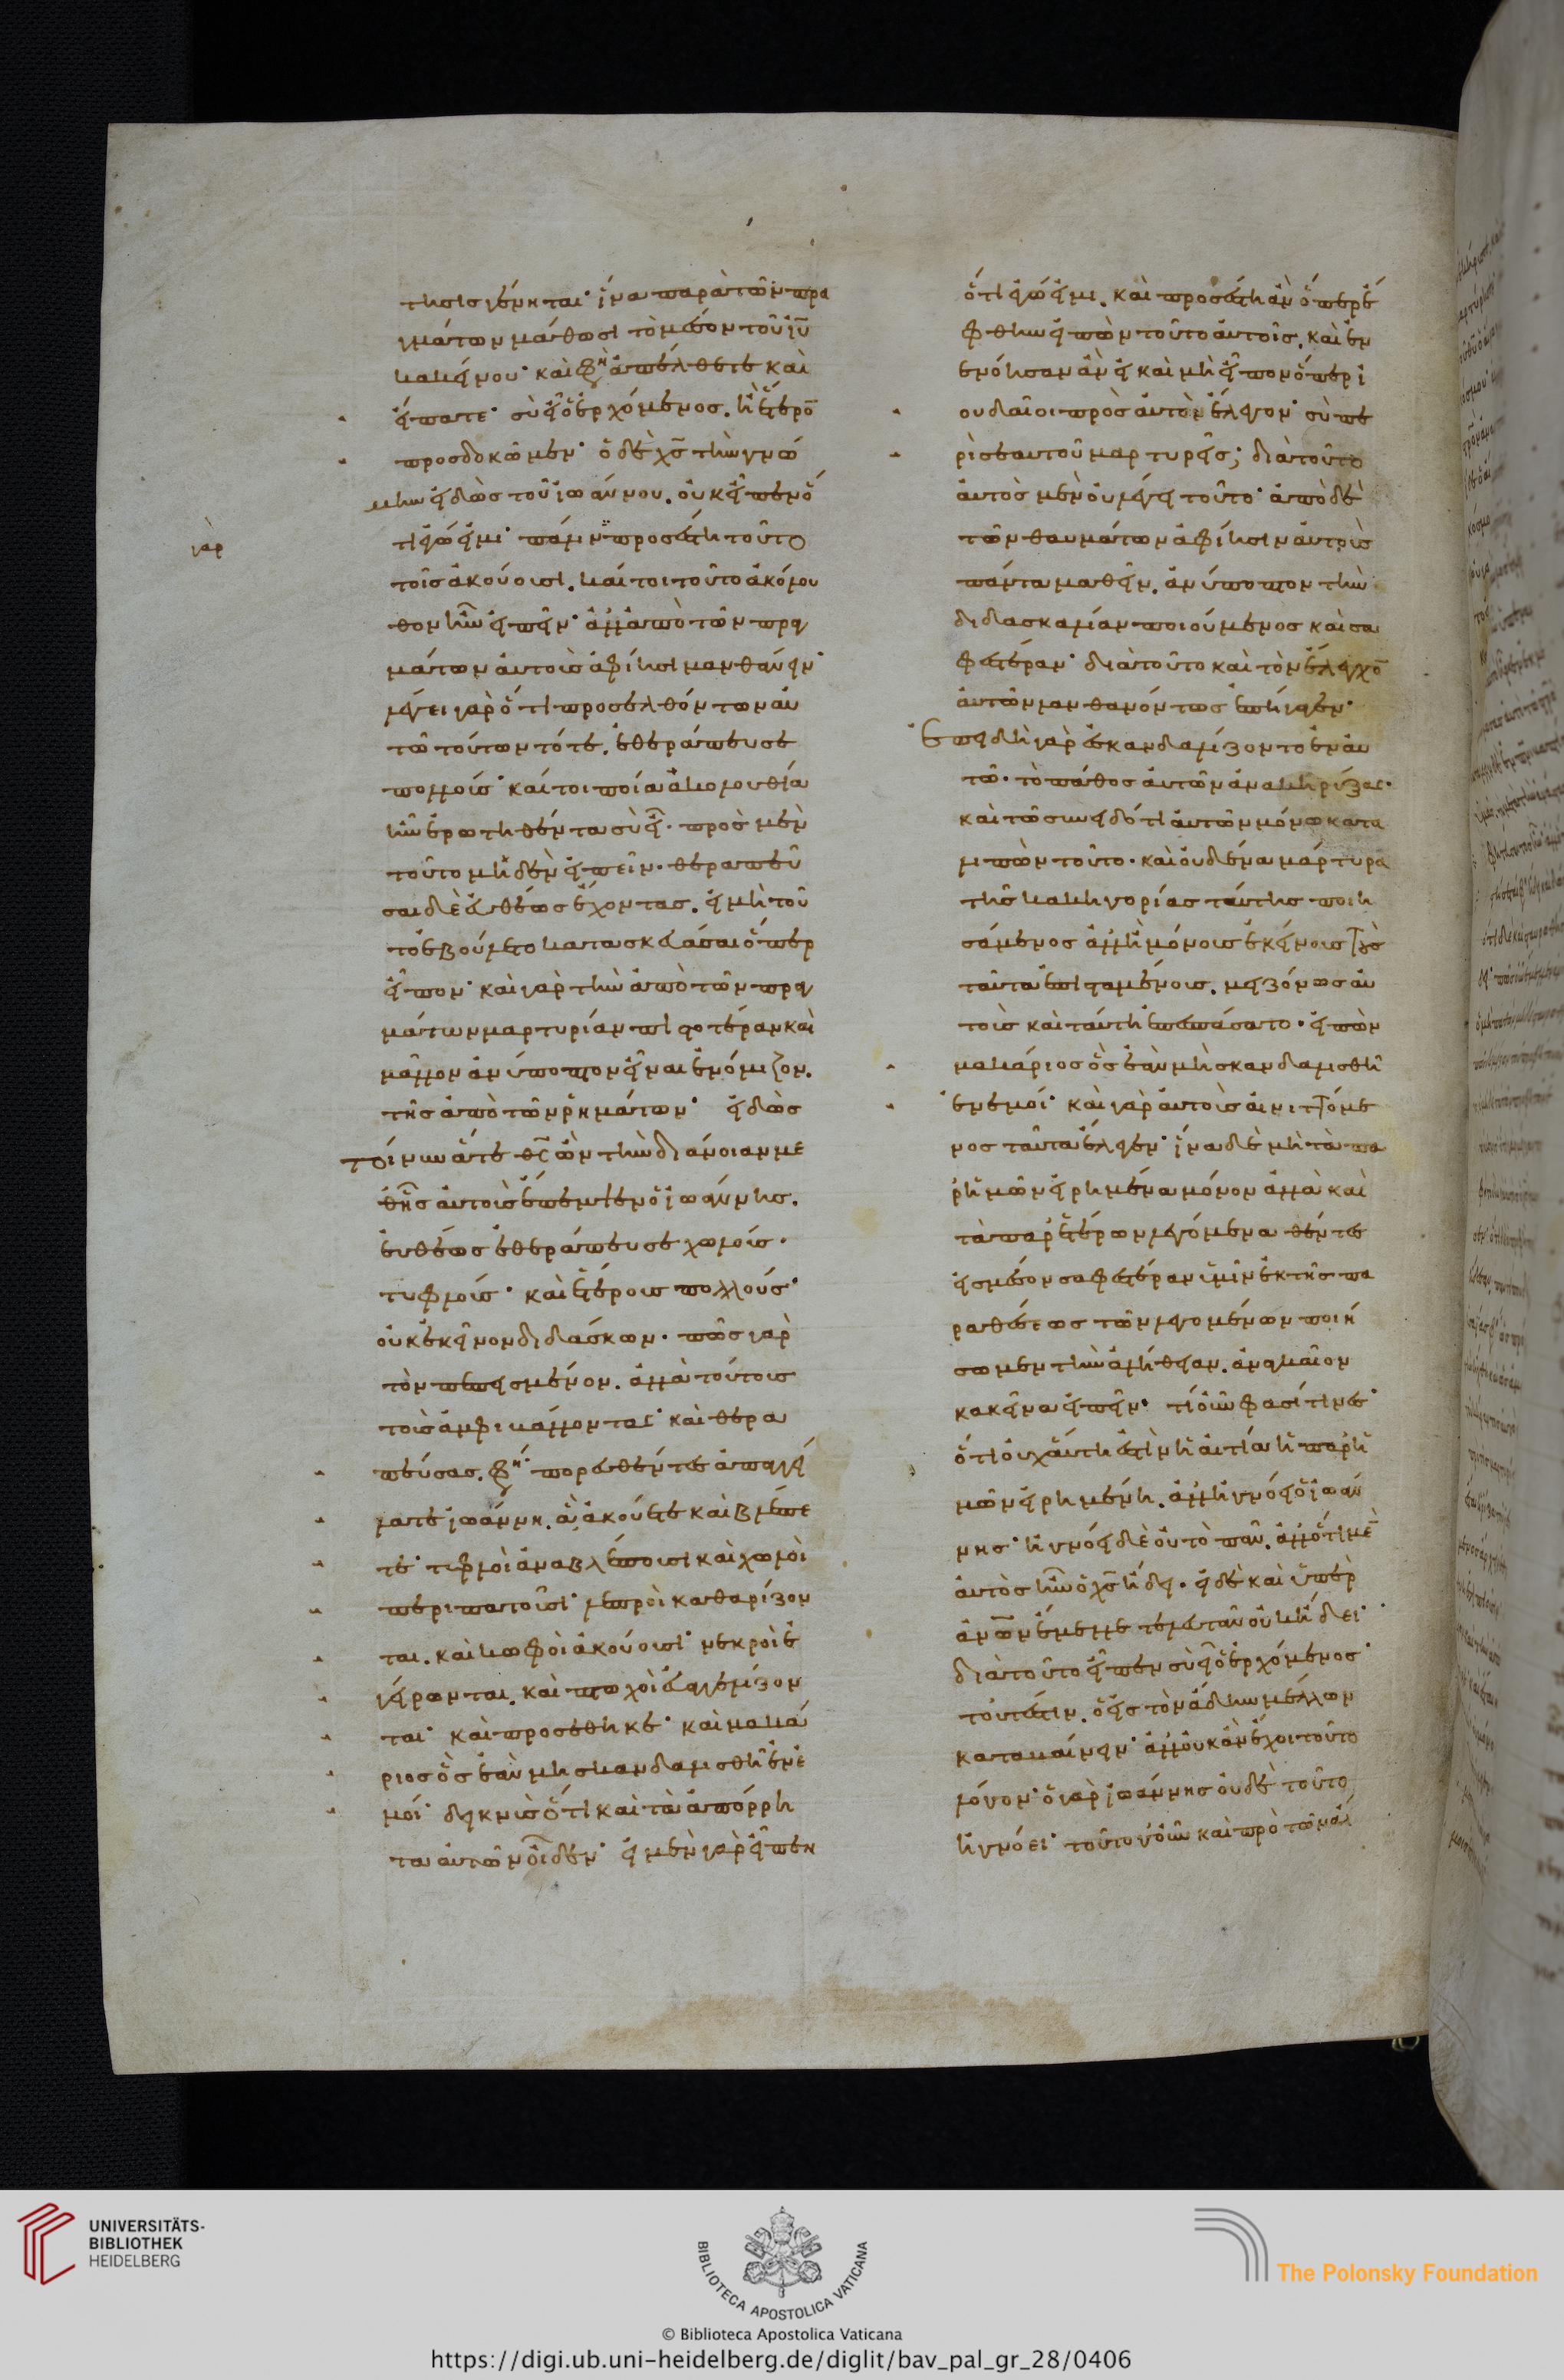 τησις γένηται· ἵνα παρὰ τῶν πρα
γμάτων μάθωσι τὸ μέσον τοῦ ἰῦ
κακείνου· καὶ φη ἀπέλθετε καὶ
εἴπατε· σὺ εἶ ὁ ἐρχόμενος. ἢ ἕτερο̅
προσδοκῶμεν· ὁ δὲ χς̅ τὴν γνώ
μην εἰδὼς τοῦ ἰωάννου. οὐκ εἶπεν ὅ
τι ἐγώ εἰμι· πάλιν προσέστη τοῦτο
γὰρ
τοῖς ἀκούουσι. καίτοι τοῦτο ἀκόλου
θον ἦν εἰπεῖν· ἀλλ' ἀπὸ τῶν πραγ
μάτων αὐτοὺς ἀφίησι μανθάνειν·
λέγει γὰρ ὅτι προσελθόντων αὐ
τῶ τούτων τότε. ἐθεράπευσε
πολλούς· καίτοι ποία ἀκολουθία
ἦν ἐρωτηθέντα σὺ εἶ. πρὸς μὲν
τοῦτο μηδὲν εἰπεῖν. θεραπεῦ
σαι δὲ εὐθέως ἔχοντας. εἰ μὴ τοῦ
το ἐβούλετο κατασκευάσαι ὅπερ
εἶπον· καὶ γὰρ τὴν ἀπὸ τῶν πραγ
μάτων μαρτυρίαν πιστοτέραν καὶ
μᾶλλον ἀνύποπτον εἶναι ἐνόμιζον.
τῆς ἀπὸ τῶν ῥημάτων· εἰδὼς
τοίνυν ἅτε θς̅ ὢν τὴν διάνοιαν με
θ' ἧς αὐτοὺς ἔπεμψεν ὁ ἰωάννης.
εὐθέως ἐθεράπευσε χωλούς.
τυφλούς· καὶ ἑτέρους πολλούς·
οὐκ ἐκεῖνον διδάσκων. πῶς γὰρ
τὸν πεπεισμένον. ἀλλὰ τούτους
τοὺς ἀμφιβάλλοντας· καὶ θερα
πεύσας. φη πορευθέντες ἀπαγγεί
λατε ἰωάννη. ἃ ἀκούετε καὶ βλέπε
τε· τυφλοὶ ἀναβλέπουσι καὶ χωλοὶ
περιπατοῦσι· λεπροὶ καθαρίζον
ται. καὶ κωφοὶ ἀκούουσι· νεκροὶ ἐ
γείρονται. καὶ πτωχοὶ εὐαγγελίζον
ται· καὶ προσέθηκε· καὶ μακά
ριος ὃς ἐὰν μὴ σκανδαλισθῆ ἐν ἐ
μοί· δεικνὺς ὅτι καὶ τὰ ἀπόρρη
τα αὐτῶν οἶδεν· εἰ μὲν γὰρ εἶπεν
ὅτι ἐγώ εἰμι. καὶ προσέστη ἂν ὅπερ ἔ
φθην εἰπὼν τοῦτο αὐτοῖς. καὶ ἐν
ενόησαν ἂν εἰ καὶ μὴ εἶπον ὅπερ ἰ
ουδαῖοι πρὸς αὐτὸν ἔλεγον· σὺ πε
ρὶ σεαυτοῦ μαρτυρεῖς; διὰ τοῦτο
αὐτὸς μὲν οὐ λέγει τοῦτο· ἀπὸ δὲ
τῶν θαυμάτων ἀφίησιν αὐτοὺς
πάντα μαθεῖν. ἀνύποπτον τὴν
διδασκαλίαν ποιούμενος καὶ σα
φεστέραν· διὰ τοῦτο καὶ τὸν ἔλεγχο̅
αὐτῶν λανθανόντως ἐπήγαγεν·
Ἐπειδὴ γὰρ ἐσκανδαλίζοντο ἐν αὐ
τῶ. τὸ πάθος αὐτῶν ἀνακηρύξας.
καὶ τῶ συνειδότι αὐτῶν μόνω κατα
λιπὼν τοῦτο. καὶ οὐδένα μάρτυρα
τῆς κατηγορίας ταύτης ποιη
σάμενος ἀλλ' ἢ μόνους ἐκείνους τοὺς
ταῦτα ἐπισταμένους. μειζόνως αὐ
τοὺς καὶ ταύτη ἐπεσπάσατο. εἰπὼν
μακάριος ὃς ἐὰν μὴ σκανδαλισθῆ
ἐν ἐμοί· καὶ γὰρ αὐτοὺς αἰνιττόμε
νος ταῦτα ἔλεγεν· ἵνα δὲ μὴ τὰ πα
ρ' ἡμῶν εἰρημένα μόνον ἀλλὰ καὶ
τὰ παρ' ἑτέρων λεγόμενα θέντες
εἰς μέσον σαφεστέραν ὑμῖν ἐκ τῆς πα
ραθέσεως τῶν λεγομένων ποιή
σωμεν τὴν ἀλήθειαν. ἀναγκαῖον
κακεῖνα εἰπεῖν· τί οὖν φασί τινες·
ὅτι οὐχ αὕτη ἐστὶν ἡ αἰτία ἡ παρ' ἡ
μῶν εἰρημένη. ἀλλ' ἠγνόει ὁ ἰωάν
νης· ἠγνόει δὲ οὐ τὸ πᾶν. ἀλλ' ὅτι μὲ̅
αὐτὸς ἦν ὁ χς̅ ἤδει. εἰ δὲ καὶ ὑπὲρ
ἀνω̅ν ἔμελλε τελευτᾶν οὐκ ἤδει·
διὰ τοῦτο εἶπεν σὺ εἶ ὁ ἐρχόμενος·
τουτέστιν. ὁ εἰς τὸν ἅδην μέλλων
καταβαίνειν· ἀλλ' οὐκ ἂν ἔχοι τοῦτο
λόγον· ὁ γὰρ ἰωάννης οὐδὲ τοῦτο
ἠγνόει· τοῦτο γοῦν καὶ πρὸ τῶν ἄλ
UNIVERSITÄTS-
BIBLIOTHEK
HEIDELBERG
BIBLIOTECA APOSTOLICA VATICANA
The Polonsky Foundation
© Biblioteca Apostolica Vaticana
https://digi.ub.uni-heidelberg.de/diglit/bav_pal_gr_28/0406